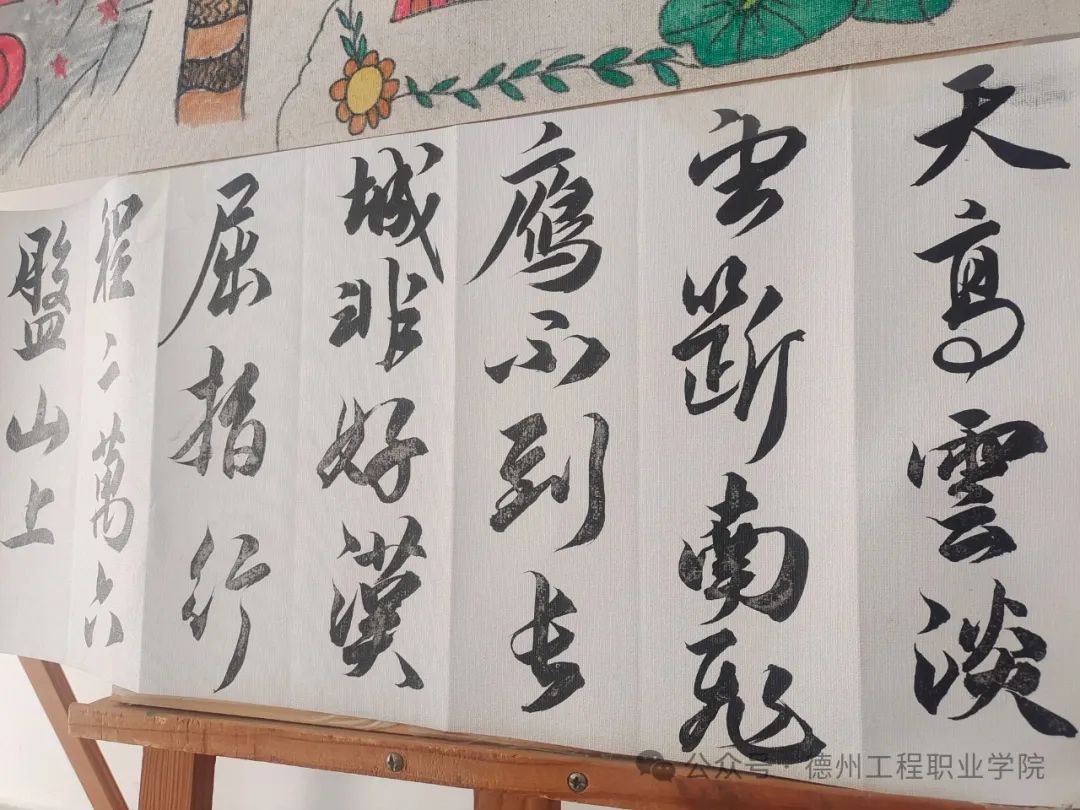 天高雲淡
望斷南飛
鴈不到長
城非好漢
屈指行
程二萬六
盤山上
公众号·德州工程职业学院